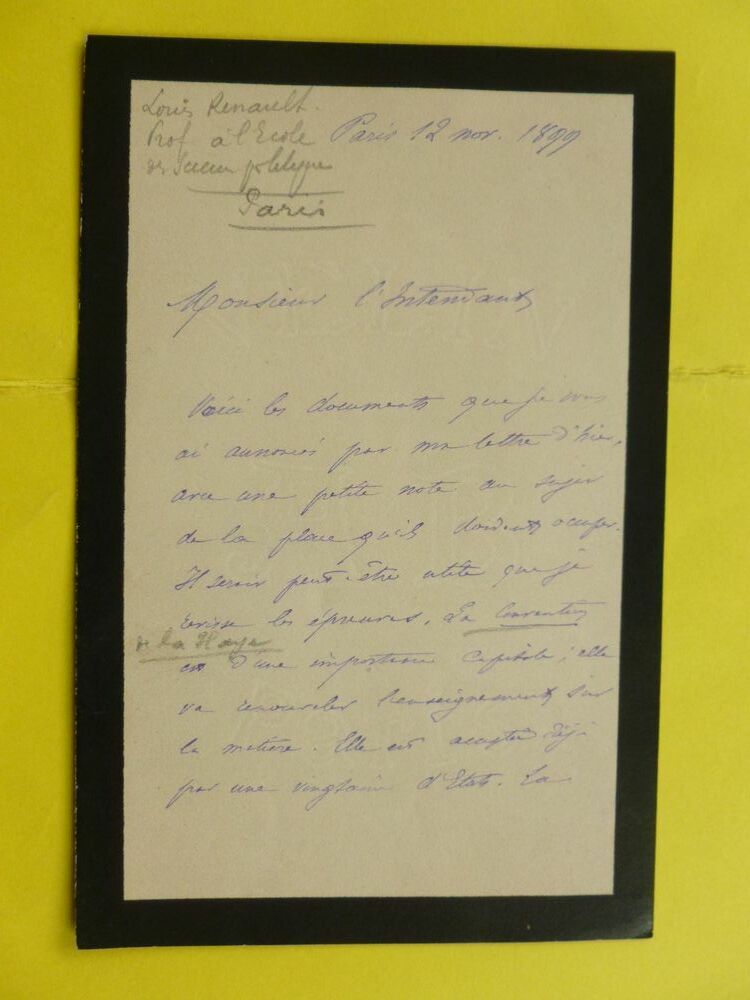 Louis Renault.
Prof à l'Ecole
Paris 12 nov. 1899
Paris
Monsieur l'Intendant
Voici les documents que je vous
ai annoncés par ma lettre d'hier,
avec une petite note au sujet
de la place qu'ils doivent occuper.
Il serait peut-être utile que je
revisse les épreuves. La Convention
de la Haye
est d'une importance capitale ; elle
va renouveler l'enseignement sur
la matière. Elle est acceptée déjà
par une vingtaine d'Etats. La